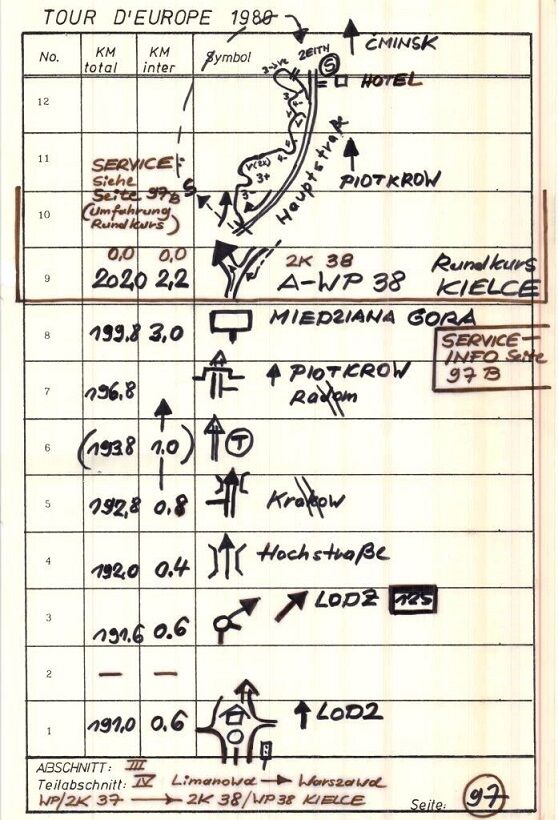 TOUR D'EUROPE 1980
No.
KM total
KM inter
Symbol
ĆMINSK
ZEITH
S
HOTEL
12
11
Hauptstraße
PIOTKROW
SERVICE:
Siehe
Seite 97B
(Umfahrung
Rundkurs)
S
10
0,0 0,0
9 202,0 2,2
2K 38
A-WP 38
Rundkurs
KIELCE
8 199,8 3,0 MIEDZIANA GORA
SERVICE-
INFO Seite
97 B
7 196,8 PIOTKROW
Radom
6 (193.8 1.0) T
5 192,8 0.8 Krakow
4 192,0 0.4 Hochstraße
3 191.6 0.6 LODZ 125
2 — —
1 191,0 0.6 LODZ
ABSCHNITT: III
Teilabschnitt: IV Limanowa → Warszawa
WP/2K 37 → 2K 38/WP 38 KIELCE
Seite: 97